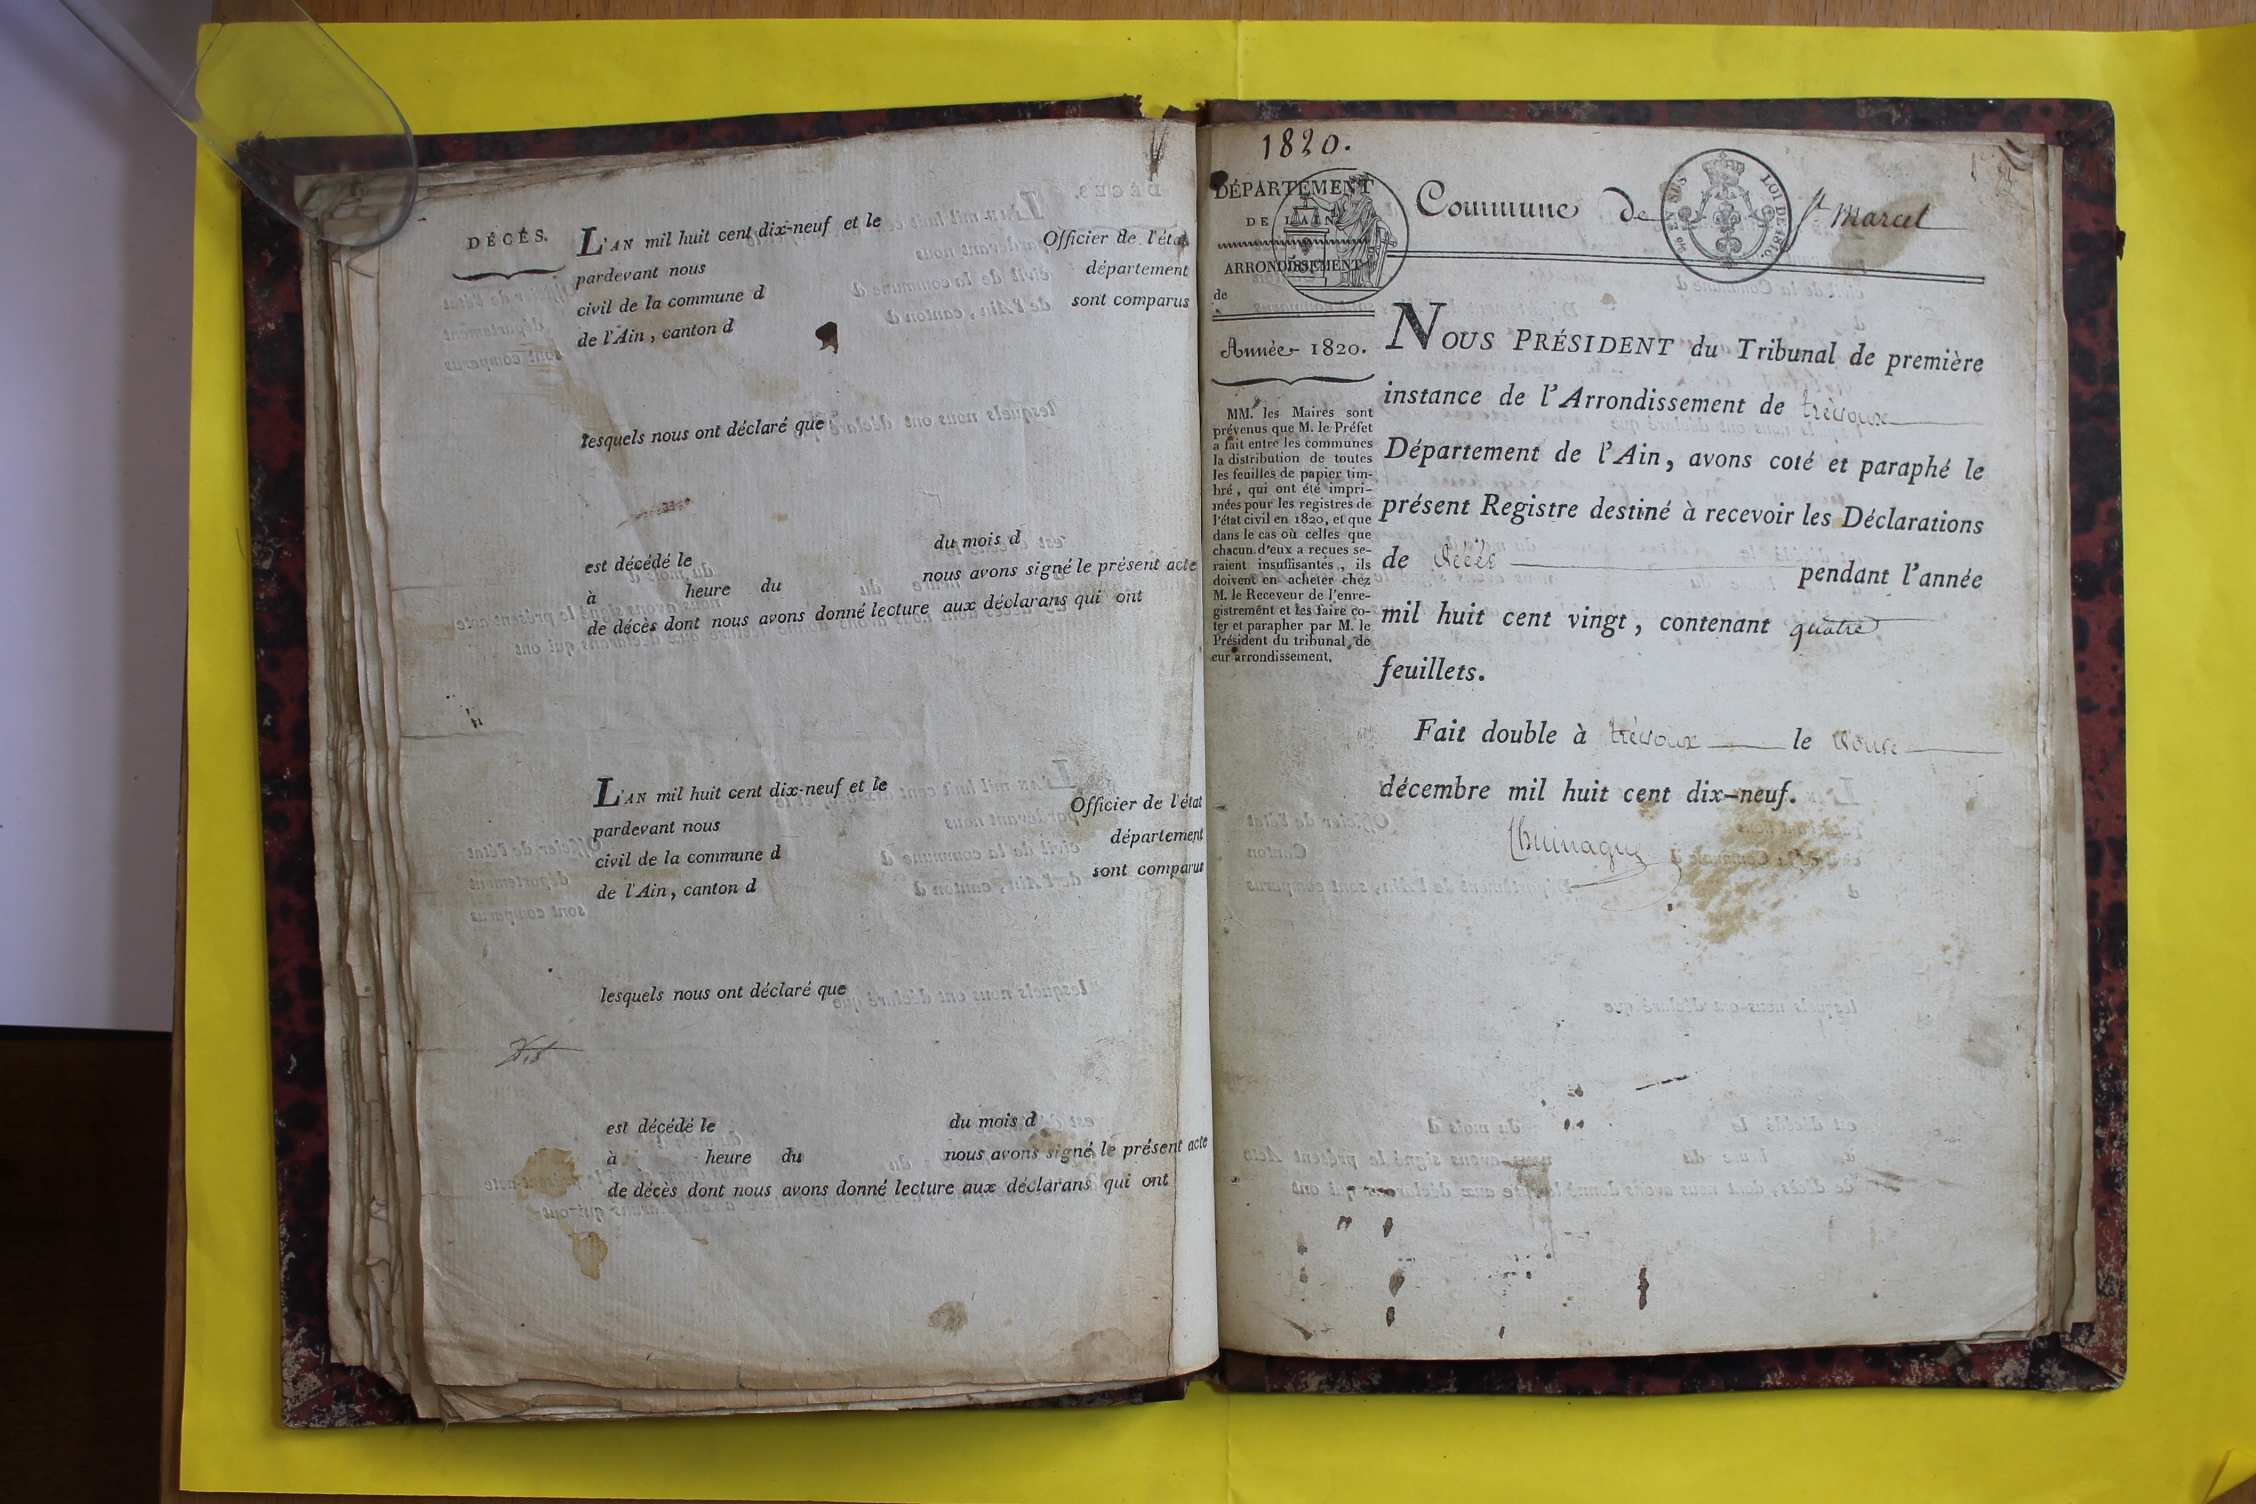 DÉCÈS.
L'AN mil huit cent dix-neuf et le
pardevant nous Officier de l'état
civil de la commune d département
de l'Ain, canton d sont comparus
lesquels nous ont déclaré que
est décédé le du mois d
à heure du nous avons signé le présent acte
de décès dont nous avons donné lecture aux déclarans qui ont
L'AN mil huit cent dix-neuf et le
pardevant nous Officier de l'état
civil de la commune d département
de l'Ain, canton d sont comparus
lesquels nous ont déclaré que
est décédé le du mois d
à heure du nous avons signé le présent acte
de décès dont nous avons donné lecture aux déclarans qui ont
1820.
DÉPARTEMENT
DE L'AIN
ARRONDISSEMENT
de
Année 1820.
MM. les Maires sont
prévenus que M. le Préfet
a fait entre les communes
la distribution de toutes
les feuilles de papier tim-
bré, qui ont été impri-
mées pour les registres de
l'état civil en 1820, et que
dans le cas où celles que
chacun d'eux a reçues se-
raient insuffisantes, ils
doivent en acheter chez
M. le Receveur de l'enre-
gistrement et les faire co-
ter et parapher par M. le
Président du tribunal de
eur arrondissement.
Commune de St Marcel
EN SUS LOI DE 1816.
NOUS PRÉSIDENT du Tribunal de première
instance de l'Arrondissement de trévoux
Département de l'Ain, avons coté et paraphé le
présent Registre destiné à recevoir les Déclarations
de décès pendant l'année
mil huit cent vingt, contenant quatre
feuillets.
Fait double à trévoux le douze
décembre mil huit cent dix-neuf.